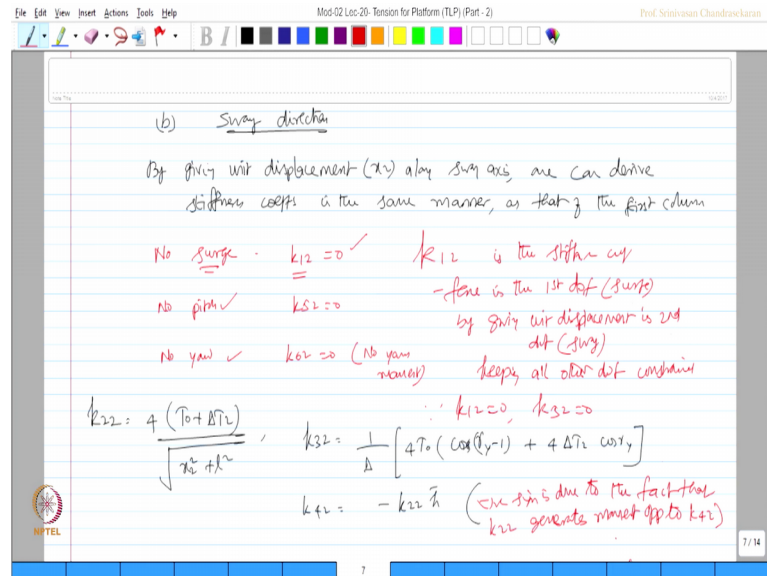 File Edit View Insert Actions Tools Help
Mod-02 Lec-20- Tension for Platform (TLP) (Part - 2)
Prof. Srinivasan Chandrasekaran
B I
Note Title
(b) Sway direction
By giving unit displacement (x2) along sway axis, one can derive
stiffness coeffs in the same manner, as that of the first column
No surge - k12 = 0 ✓
No pitch ✓ k52 = 0
No yaw ✓ k62 = 0 (No yaw moment)
k12 is the stiffn
- force is the 1st dof (surge)
by giving unit displacement is 2nd
dof (sway)
keeping all other dof constrained
∵ k12=0, k32=0
k22 = 4 (T0 + ΔT2) / √(x2² + l²) ,
k32 = 1/Δ [4T0 (cos(γy-1) + 4 ΔT2 cosγy]
k42 = - k22 h̄ (-ve sign is due to the fact that
k22 generates moment opp to k42)
NPTEL
7 / 14
7